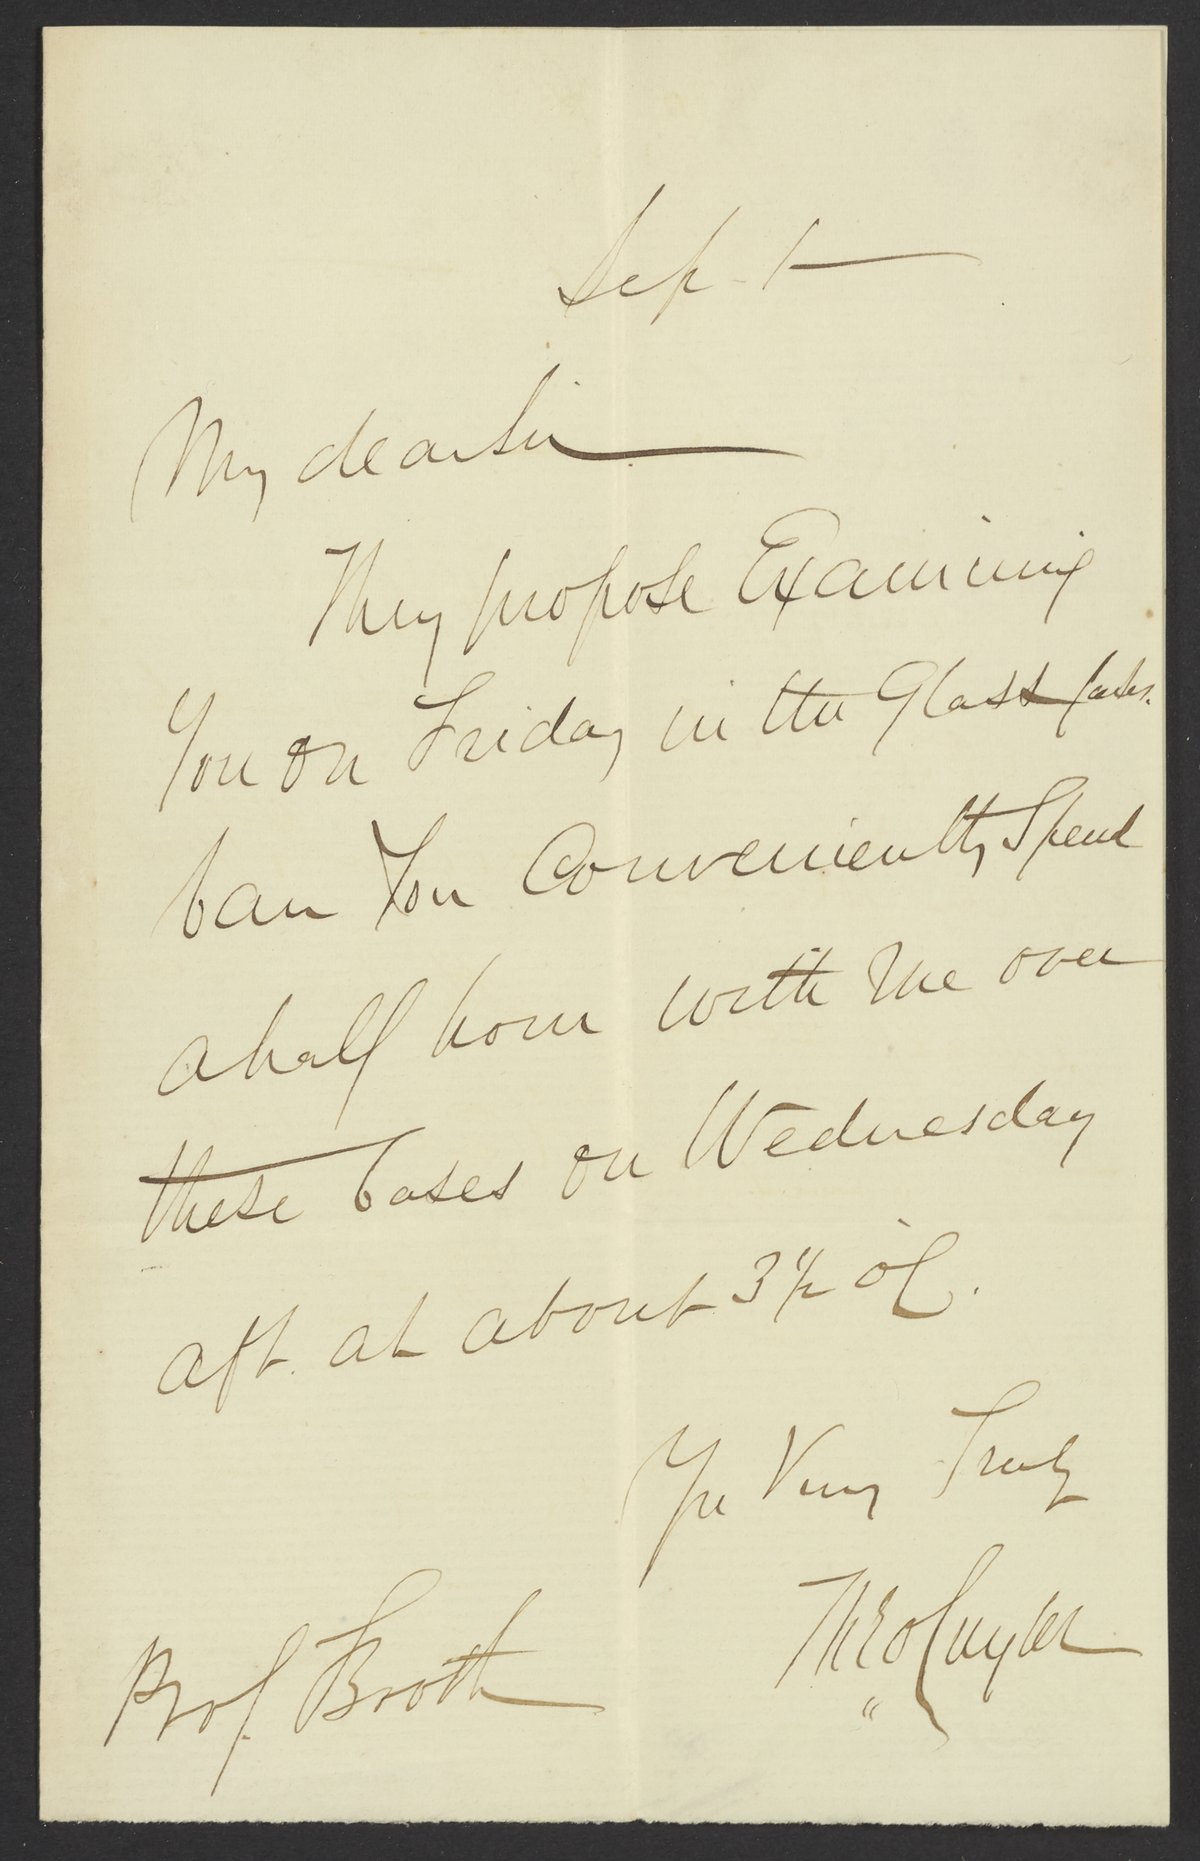 Sep. 1
My dear Sir
They propose Examining
You on Friday in the Glass Cases.
Can You Conveniently Spend
a half hour with me over
these Cases on Wednesday
aft. at about 3 1/2 o'C.
Yrs Very Truly
Theo Cuyler
Prof. Booth